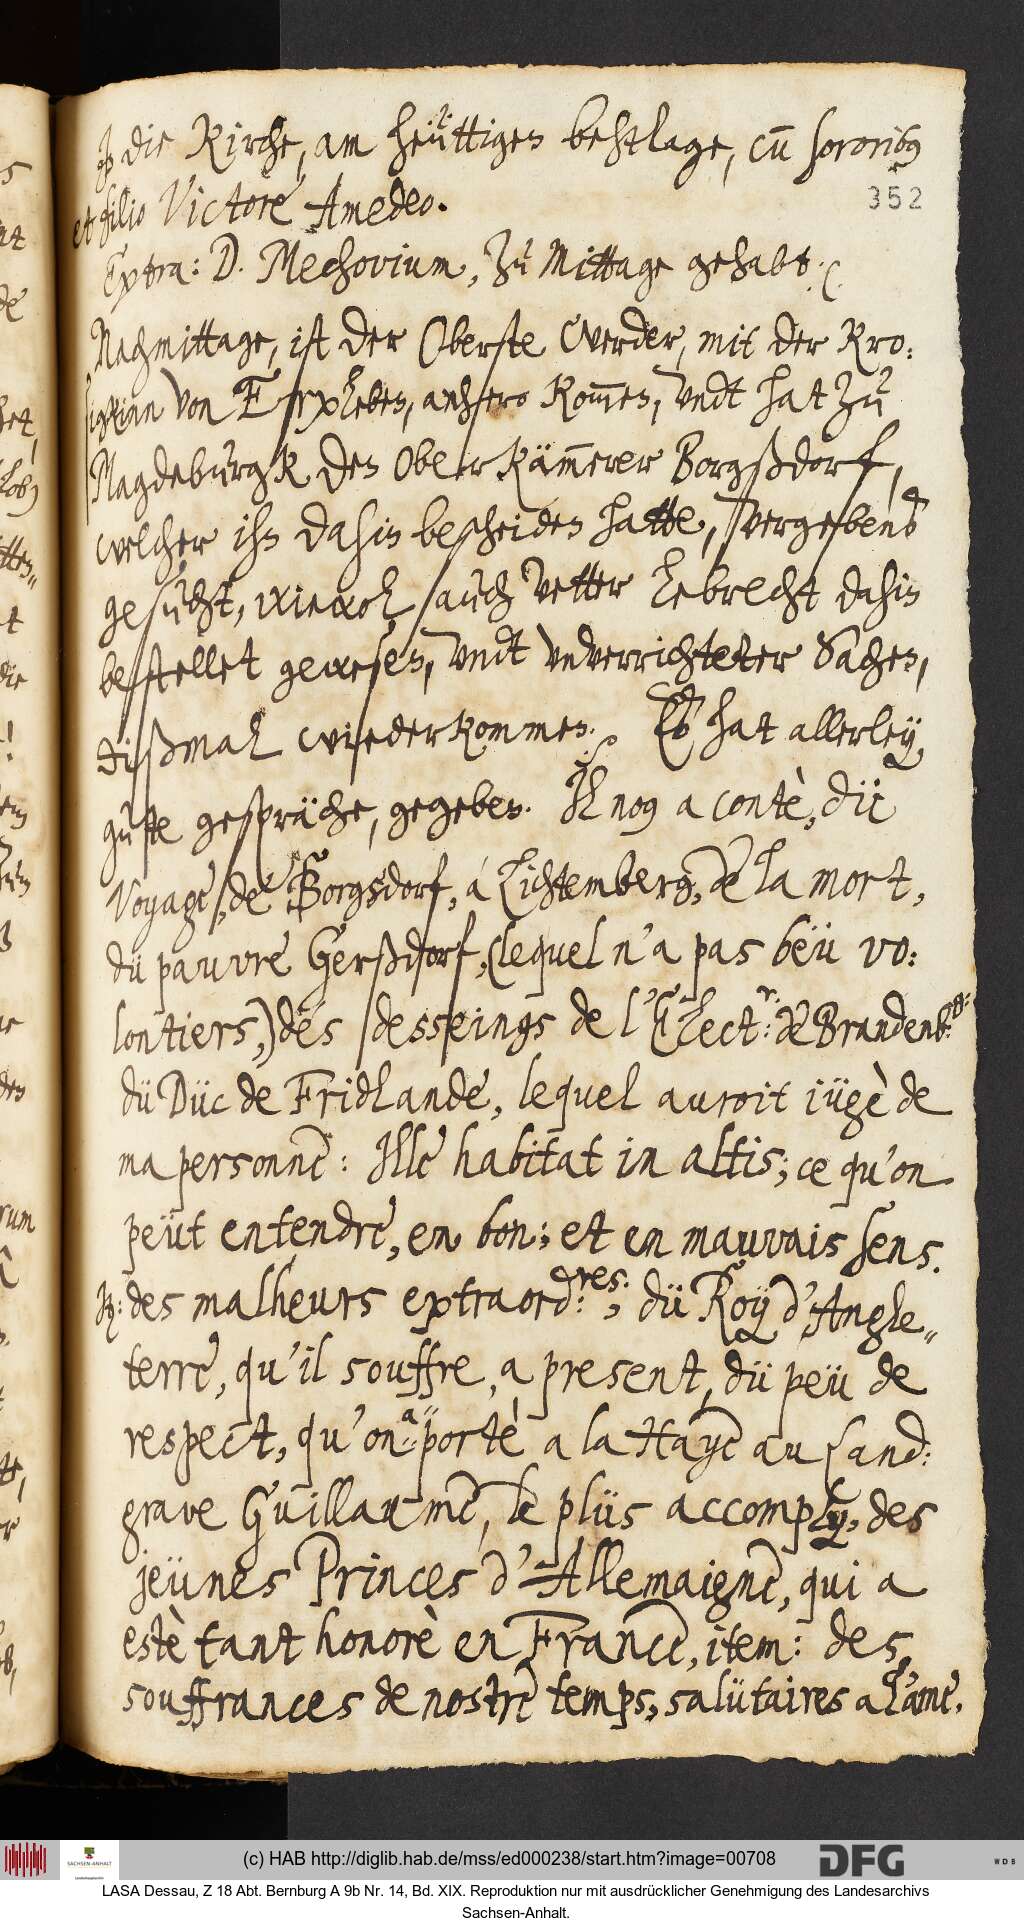 die Kirche, am heüttigen behtage, cũ sororibq
352
et filio Victore Amedeo.
Extra: D. Mechovium, zu Mittage gehabt.
Nachmittage, ist der Oberste Werder, mit der Kro:
sigkinn von Erxleben, anhero kom̄en, undt hat zu
Magdeburgk den Ober Käm̄erer Borgßdorf,
welcher ihn dahin bescheiden hatte, vergebens
gesucht, wiewol auch Vetter Lebrecht dahin
bestellet gewesen, undt unverrichteter Sachen,
dißmal wiederkommen. Es hat allerley
gute gespräche, gegeben. Il nog a contè, dü
Voyage, de Borgsdorf, a Lichtemberg, de la mort,
dü pauvre Gerßdorf, (lequel n'a pas beü vo:
lontiers,) des desseings de l'Elect:r de Brandenb:
dü Düc de Fridlande, lequel auroit iügè de
ma personne: Ille habitat in altis; ce qu'on
peüt entendre, en bon; et en mauvais sens.
It: des malheurs extraord:res; dü Roÿ d'Angle„
terre, qu'il souffre, a present, dü peü de
respect, qu'on a portè a la Haye au Land:
grave Guillaume, le plüs accomply, des
jeünes Princes d'Allemaigne, qui a
estè tant honorè en France, item: des
souffrances de nostre temps, salütaires a l'ame.
(c) HAB http://diglib.hab.de/mss/ed000238/start.htm?image=00708
DFG
WDB
SACHSEN-ANHALT
LASA Dessau, Z 18 Abt. Bernburg A 9b Nr. 14, Bd. XIX. Reproduktion nur mit ausdrücklicher Genehmigung des Landesarchivs
Sachsen-Anhalt.